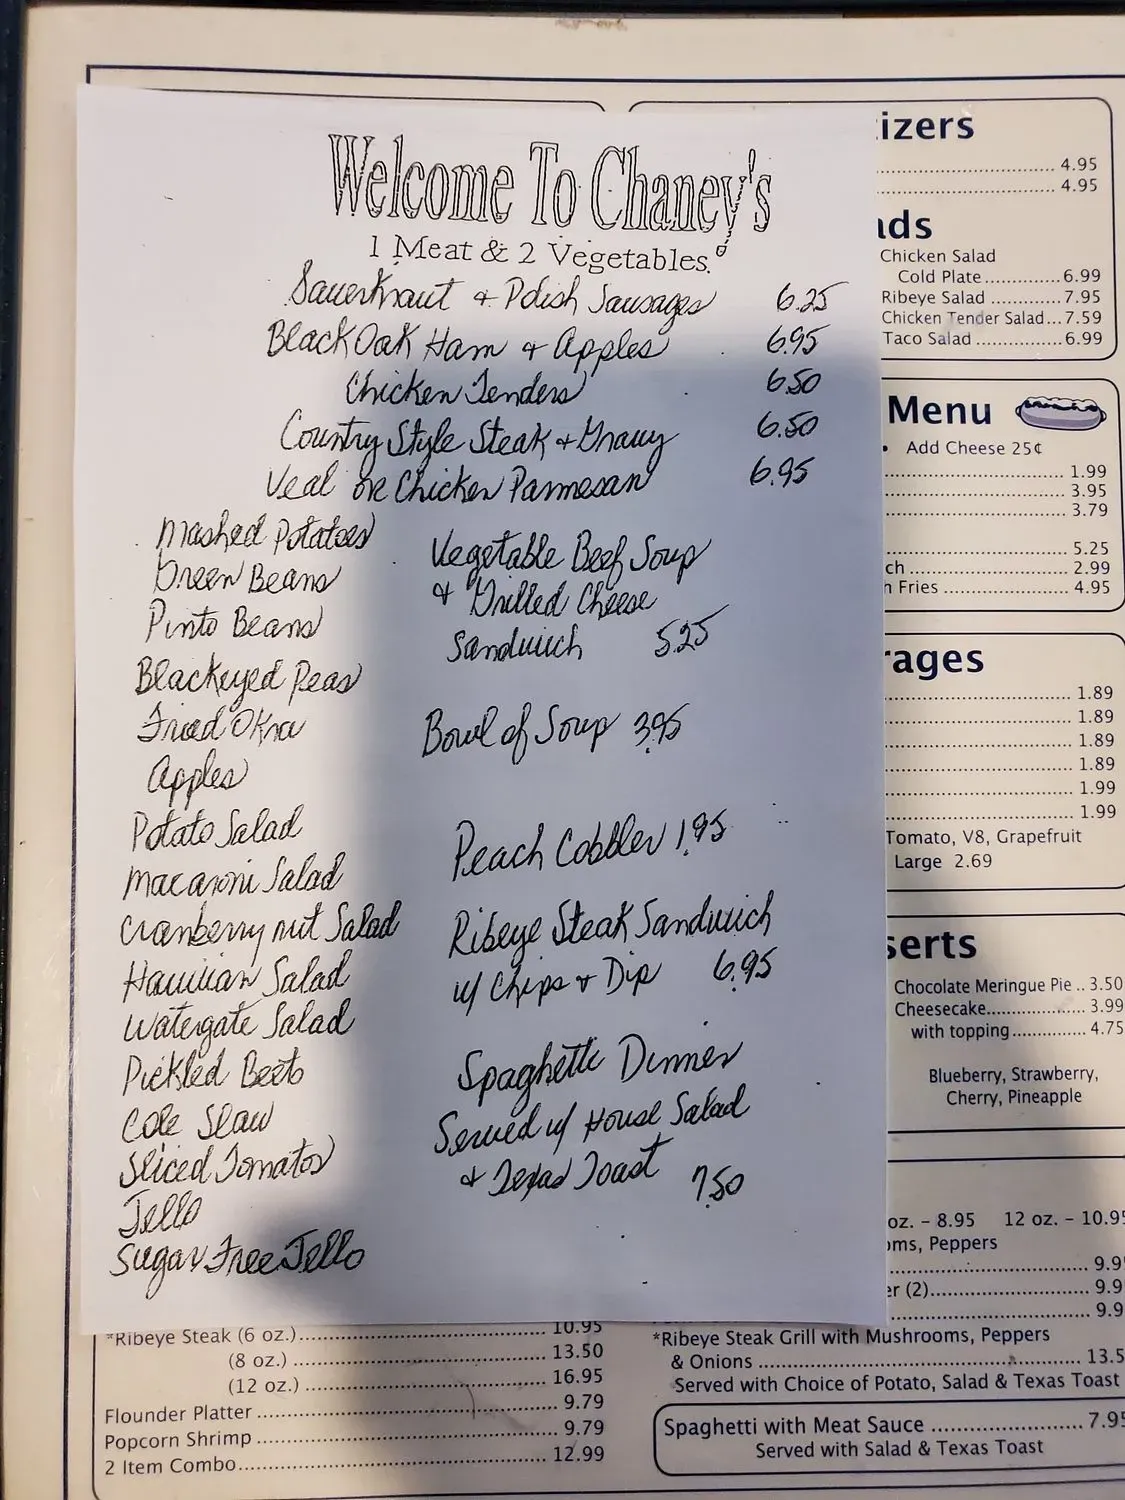 Welcome To Chaney's
1 Meat & 2 Vegetables
Sauerkraut & Polish Sausages 6.25
Black Oak Ham & Apples 6.95
Chicken Tenders 6.50
Country Style Steak & Gravy 6.50
Veal or Chicken Parmesan 6.95
Mashed Potatoes
Green Beans
Pinto Beans
Blackeyed Peas
Fried Okra
Apples
Potato Salad
Macaroni Salad
Cranberry nut Salad
Hawiian Salad
Watergate Salad
Pickled Beets
Cole Slaw
Sliced Tomatos
Jello
Sugar Free Jello
Vegetable Beef Soup
& Grilled Cheese
Sandwich 5.25
Bowl of Soup 3.95
Peach Cobbler 1.95
Ribeye Steak Sandwich
w/ Chips & Dip 6.95
Spaghetti Dinner
Served w/ House Salad
& Texas Toast 7.50
*Ribeye Steak (6 oz.) 10.95
(8 oz.) 13.50
(12 oz.) 16.95
Flounder Platter 9.79
Popcorn Shrimp 9.79
2 Item Combo 12.99
izers
4.95
4.95
ads
Chicken Salad
Cold Plate 6.99
Ribeye Salad 7.95
Chicken Tender Salad 7.59
Taco Salad 6.99
Menu
• Add Cheese 25¢
1.99
3.95
3.79
5.25
ch 2.99
Fries 4.95
rages
1.89
1.89
1.89
1.89
1.99
1.99
Tomato, V8, Grapefruit
Large 2.69
serts
Chocolate Meringue Pie .. 3.50
Cheesecake 3.99
with topping 4.75
Blueberry, Strawberry,
Cherry, Pineapple
oz. - 8.95 12 oz. - 10.95
oms, Peppers
9.9
er (2) 9.9
9.9
*Ribeye Steak Grill with Mushrooms, Peppers
& Onions 13.5
Served with Choice of Potato, Salad & Texas Toast
Spaghetti with Meat Sauce 7.95
Served with Salad & Texas Toast